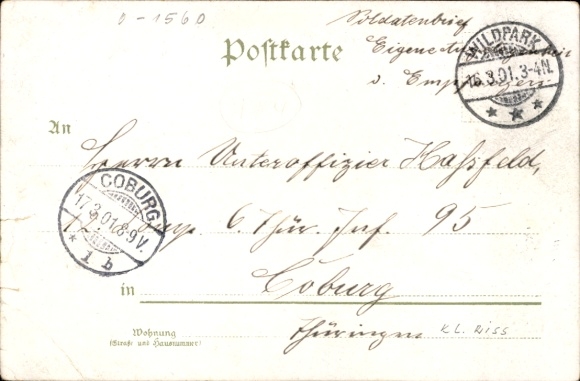 0-1560
Soldatenbrief
Postkarte
Eigene Angelegenheit
d. Empfängers
WILDPARK
16.3.01.3-4N.
An
Herrn Unteroffizier Haßfeld,
COBURG
17.3.01.8-9V.
1 b
Comp. 6. Thür. Inf. 95
in Coburg
Thüringen
KL. RISS
Wohnung
(Straße und Hausnummer)